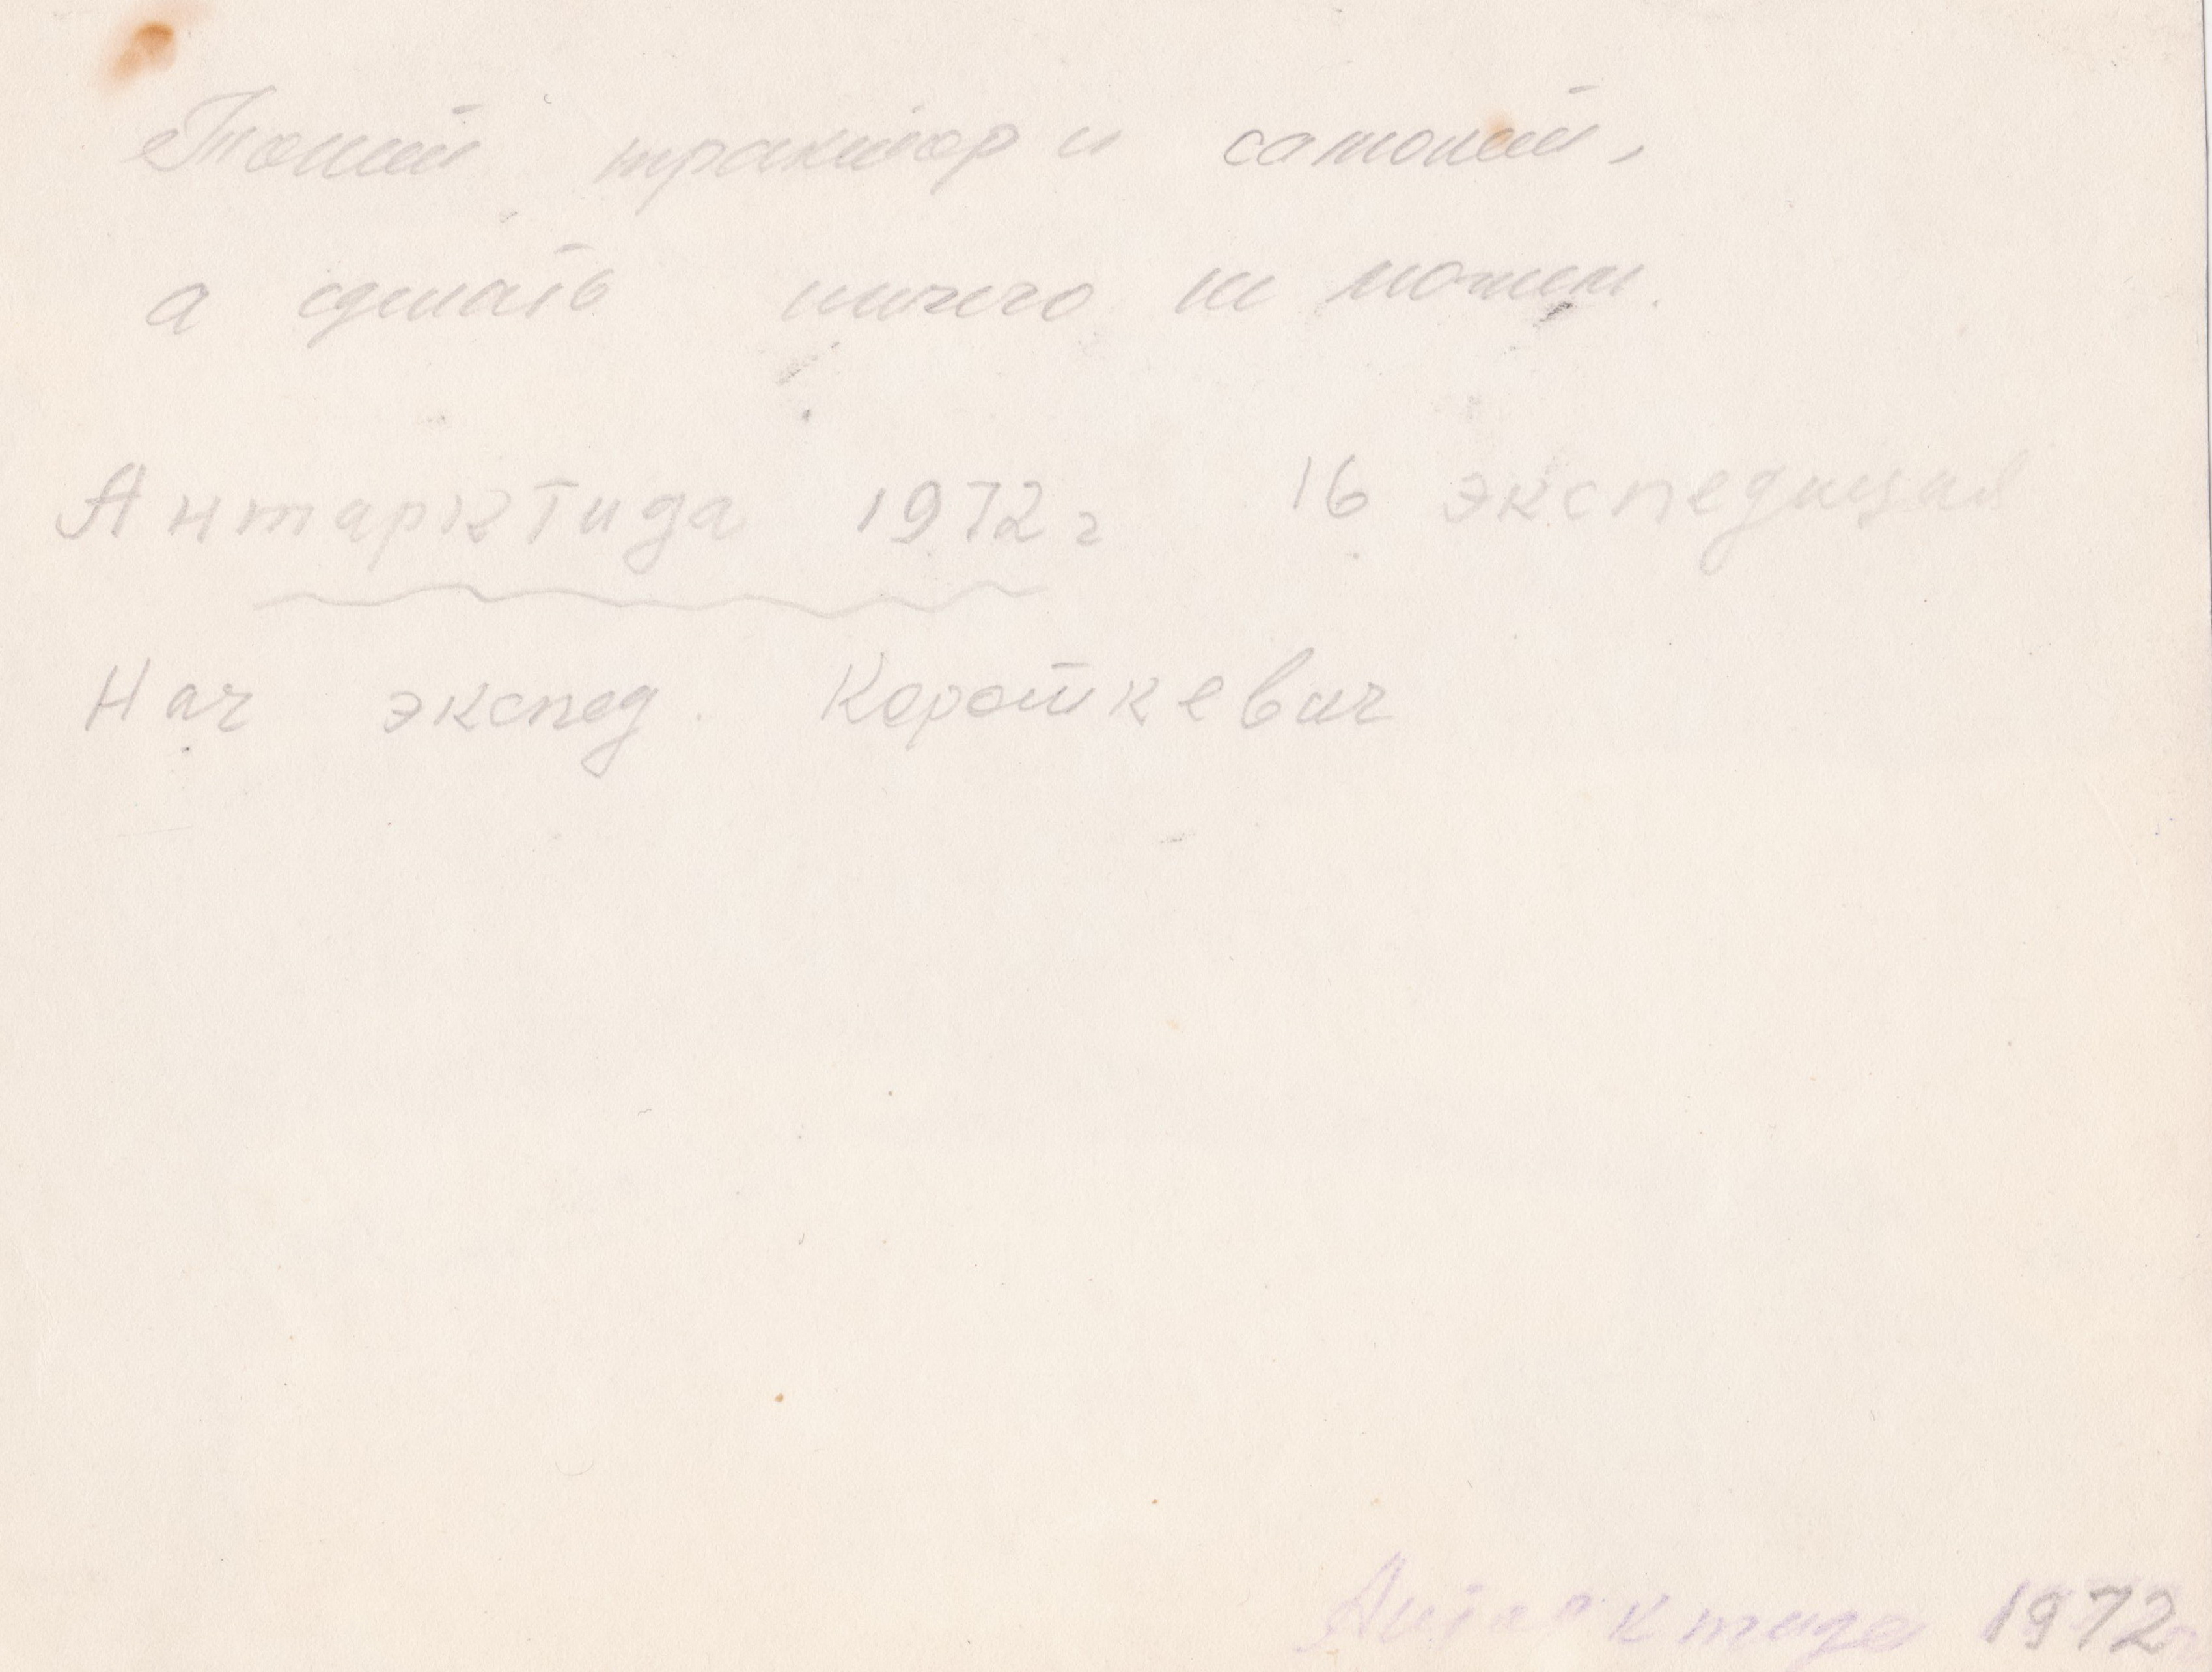 Тонет трактор и самолет,
а сделать ничего не можем.
Антарктида 1972 г 16 экспедиция
Нач экспед. Короткевич
Антарктида 1972